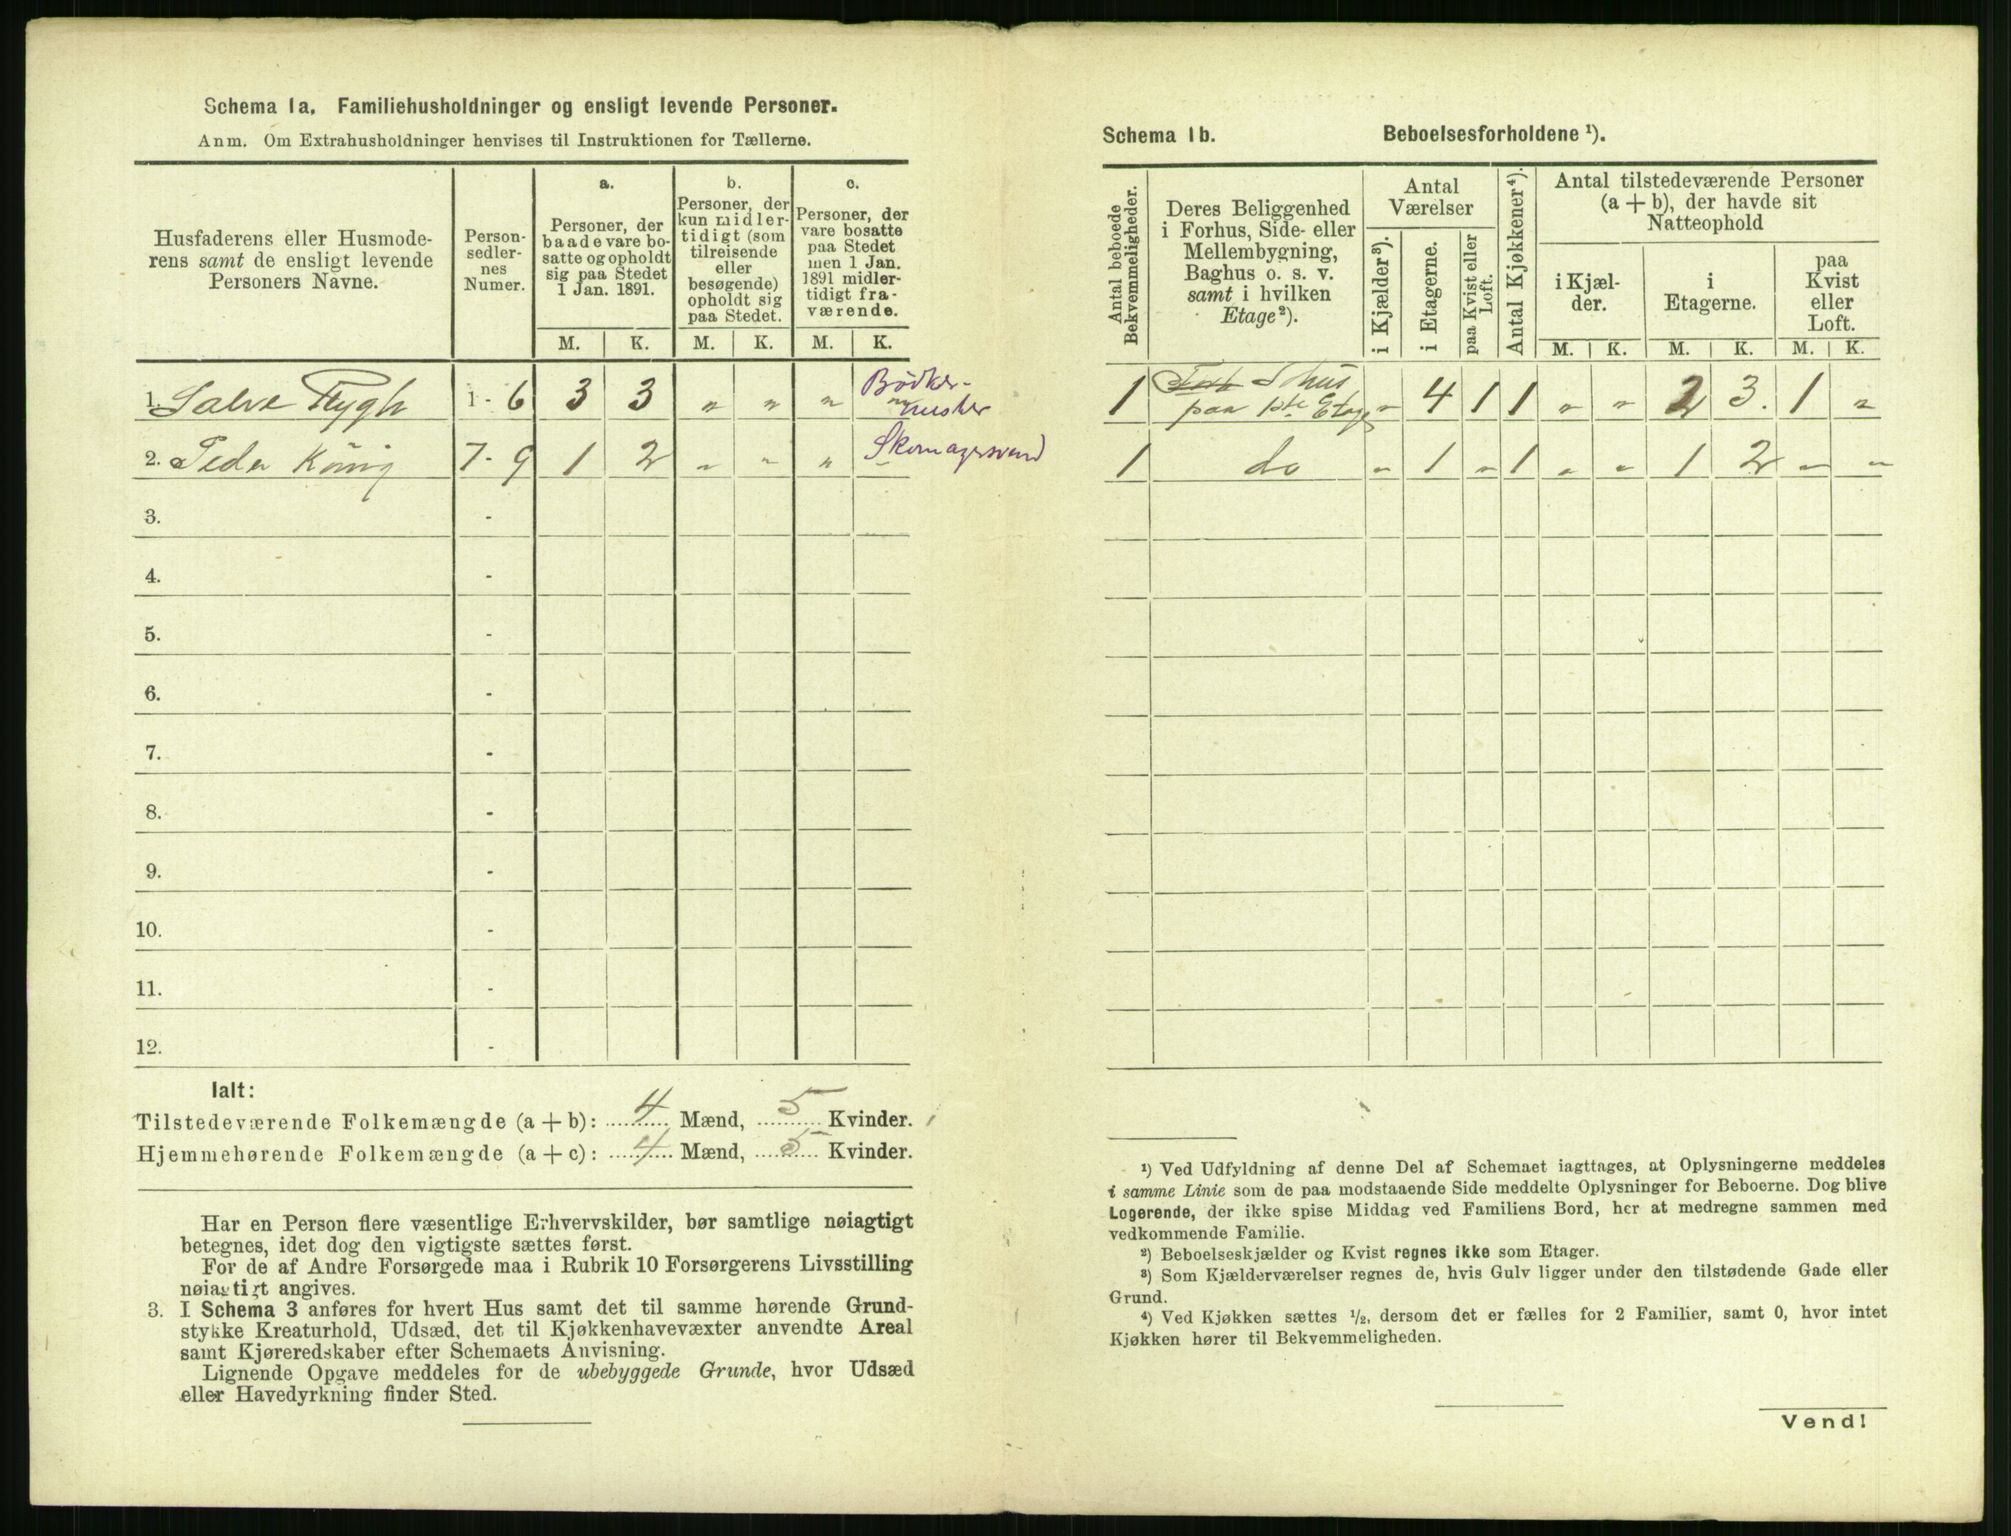 Schema 1a. Familiehusholdninger og ensligt levende Personer.
Anm. Om Extrahusholdninger henvises til Instruktionen for Tællerne.
Husfaderens eller Husmode-
rens samt de ensligt levende
Personers Navne.
Person-
sedler-
nes
Numer.
a.
Personer, der
baade vare bo-
satte og opholdt
sig paa Stedet
1 Jan. 1891.
b.
Personer, der
kun midler-
tidigt (som
tilreisende
eller
besøgende)
opholdt sig
paa Stedet.
c.
Personer, der
vare bosatte
paa Stedet
men 1 Jan.
1891 midler-
tidigt fra-
værende.
M. K. M. K. M. K.
1. Salve Flygh 1 - 6 3 3 „ „ „ Bødker-
mester
2. Peder König 7 - 9 1 2 „ „ „ Skomagersvend
3. -
4. -
5. -
6. -
7. -
8. -
9. -
10. -
11. -
12. -
Ialt:
Tilstedeværende Folkemængde (a + b): 4 Mænd, 5 Kvinder.
Hjemmehørende Folkemængde (a + c): 4 Mænd, 5 Kvinder.
Har en Person flere væsentlige Erhvervskilder, bør samtlige nøiagtigt
betegnes, idet dog den vigtigste sættes først.
For de af Andre Forsørgede maa i Rubrik 10 Forsørgerens Livsstilling
nøiagtigt angives.
3. I Schema 3 anføres for hvert Hus samt det til samme hørende Grund-
stykke Kreaturhold, Udsæd, det til Kjøkkenhavevæxter anvendte Areal
samt Kjøreredskaber efter Schemaets Anvisning.
Lignende Opgave meddeles for de ubebyggede Grunde, hvor Udsæd
eller Havedyrkning finder Sted.
Schema 1b. Beboelsesforholdene ¹).
Antal beboede
Bekvemmeligheder.
Deres Beliggenhed
i Forhus, Side- eller
Mellembygning,
Baghus o. s. v.
samt i hvilken
Etage²).
Antal
Værelser
i Kjælder³).
i Etagerne.
paa Kvist eller
Loft.
Antal Kjøkkener⁴).
Antal tilstedeværende Personer
(a + b), der havde sit
Natteophold
i Kjæl-
der.
i
Etagerne.
paa
Kvist
eller
Loft.
M. K. M. K. M. K.
1 hus
paa 1ste Etage „ 4 1 1 „ „ 2 3. 1 „
1 do „ 1 „ 1 „ „ 1 2 „ „
¹) Ved Udfyldning af denne Del af Schemaet iagttages, at Oplysningerne meddeles
i samme Linie som de paa modstaaende Side meddelte Oplysninger for Beboerne. Dog blive
Logerende, der ikke spise Middag ved Familiens Bord, her at medregne sammen med
vedkommende Familie.
²) Beboelseskjælder og Kvist regnes ikke som Etager.
³) Som Kjælderværelser regnes de, hvis Gulv ligger under den tilstødende Gade eller
Grund.
⁴) Ved Kjøkken sættes ½, dersom det er fælles for 2 Familier, samt 0, hvor intet
Kjøkken hører til Bekvemmeligheden.
Vend!